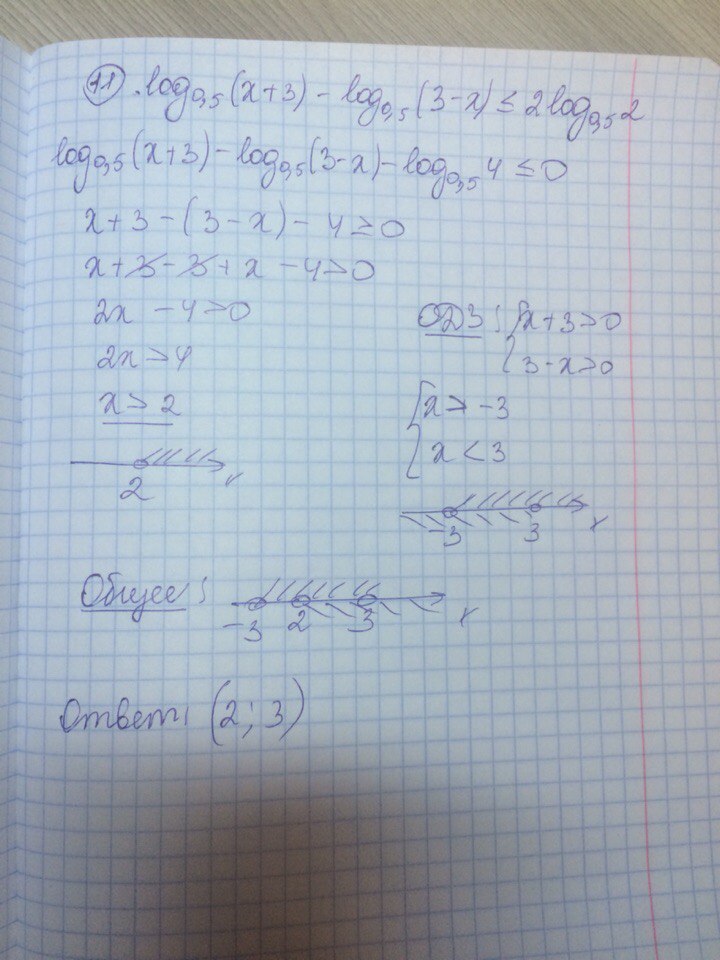 11. log₀,₅(x+3) - log₀,₅(3-x) ≤ 2log₀,₅2
log₀,₅(x+3) - log₀,₅(3-x) - log₀,₅4 ≤ 0
x+3-(3-x)-4≥0
x+3-3+x-4>0
2x-4>0
2x>4
x>2
2
x
ОДЗ: { x+3>0
3-x>0
{ x>-3
x<3
-3 3
x
Общее:
-3 2 3 x
Ответ: (2; 3)